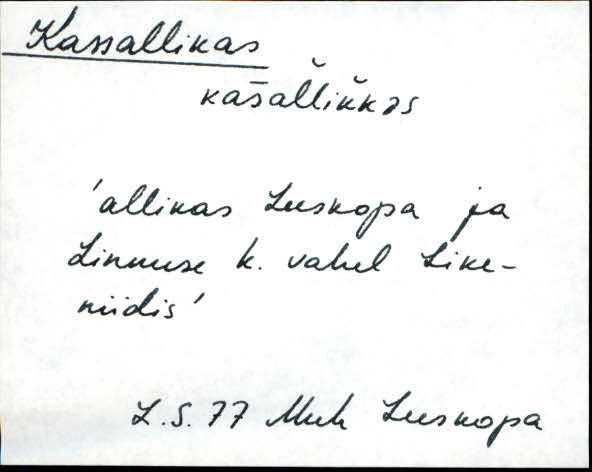 Kassallikas
kas̄al̆lik̆kəs
'allikas Leeskopa ja
Linnuse k. vahel Like-
niidis'
L.S. 77 Muh Leeskopa